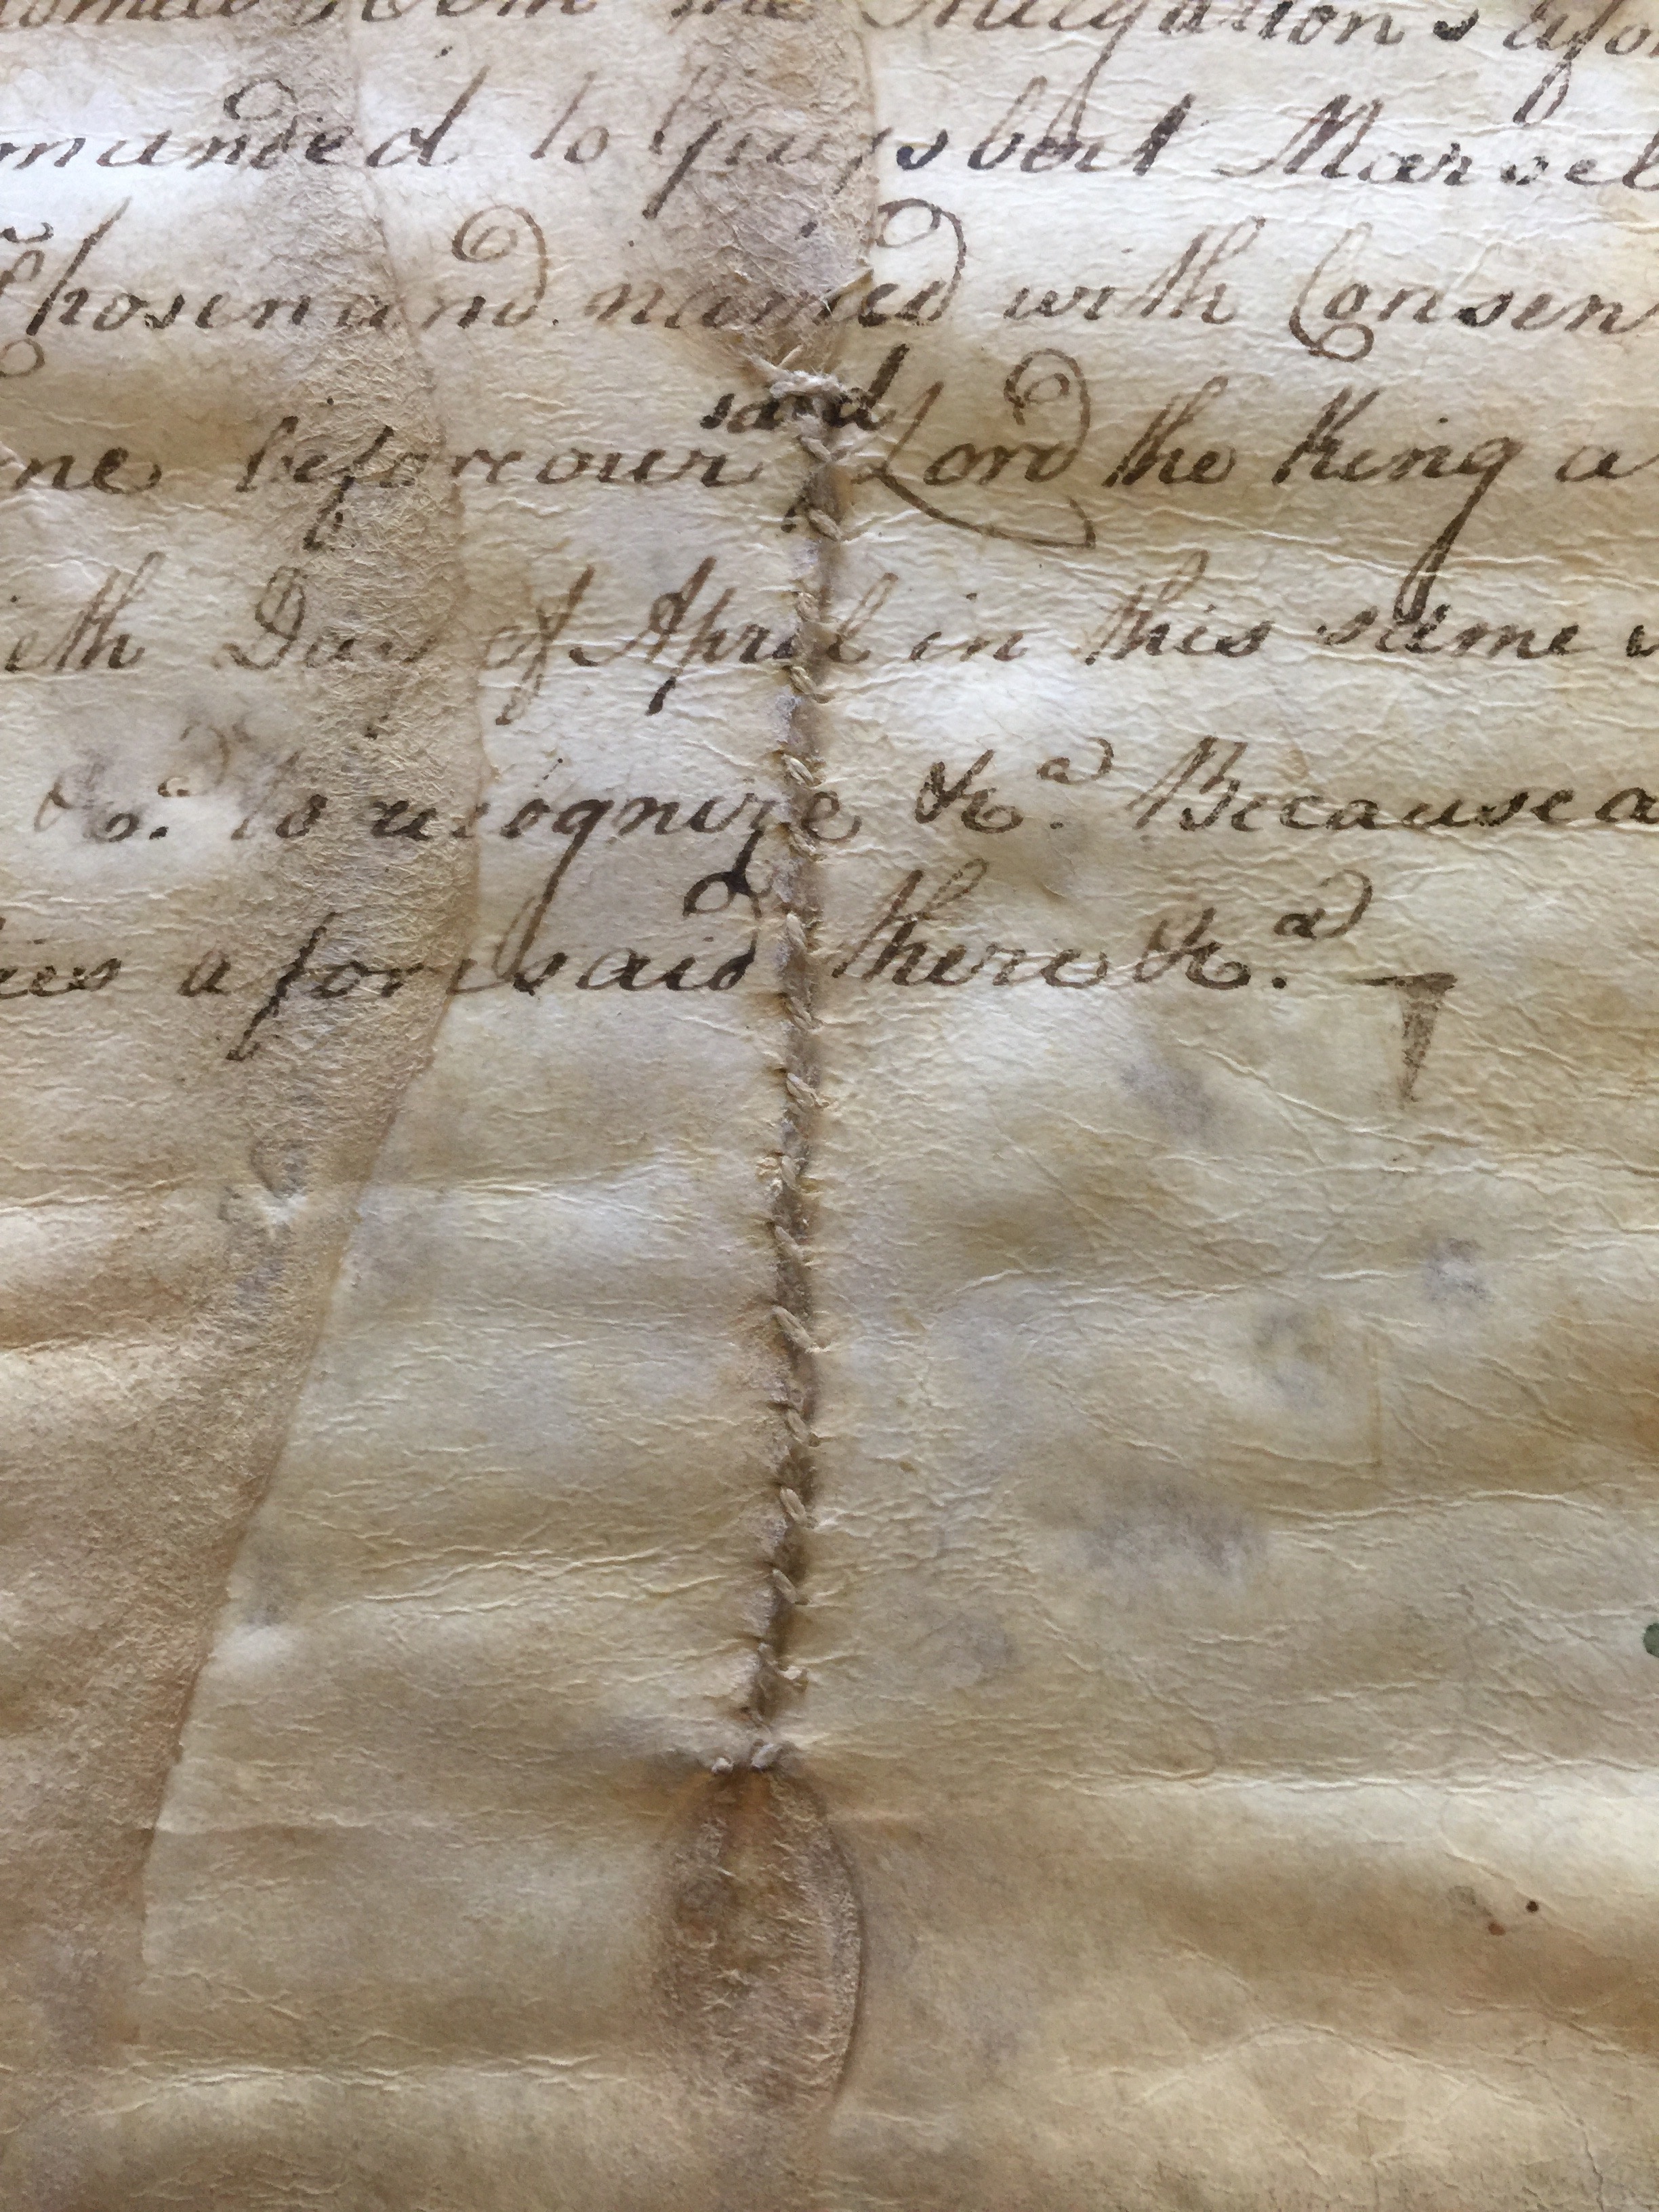 the Allegations afor
manded to Guysbert Marsel
Chosen and named with Consen
ne before our said Lord the King a
ieth Day of April in this same
&c.a to recognize &c.a Because a
ties aforesaid there &c.a